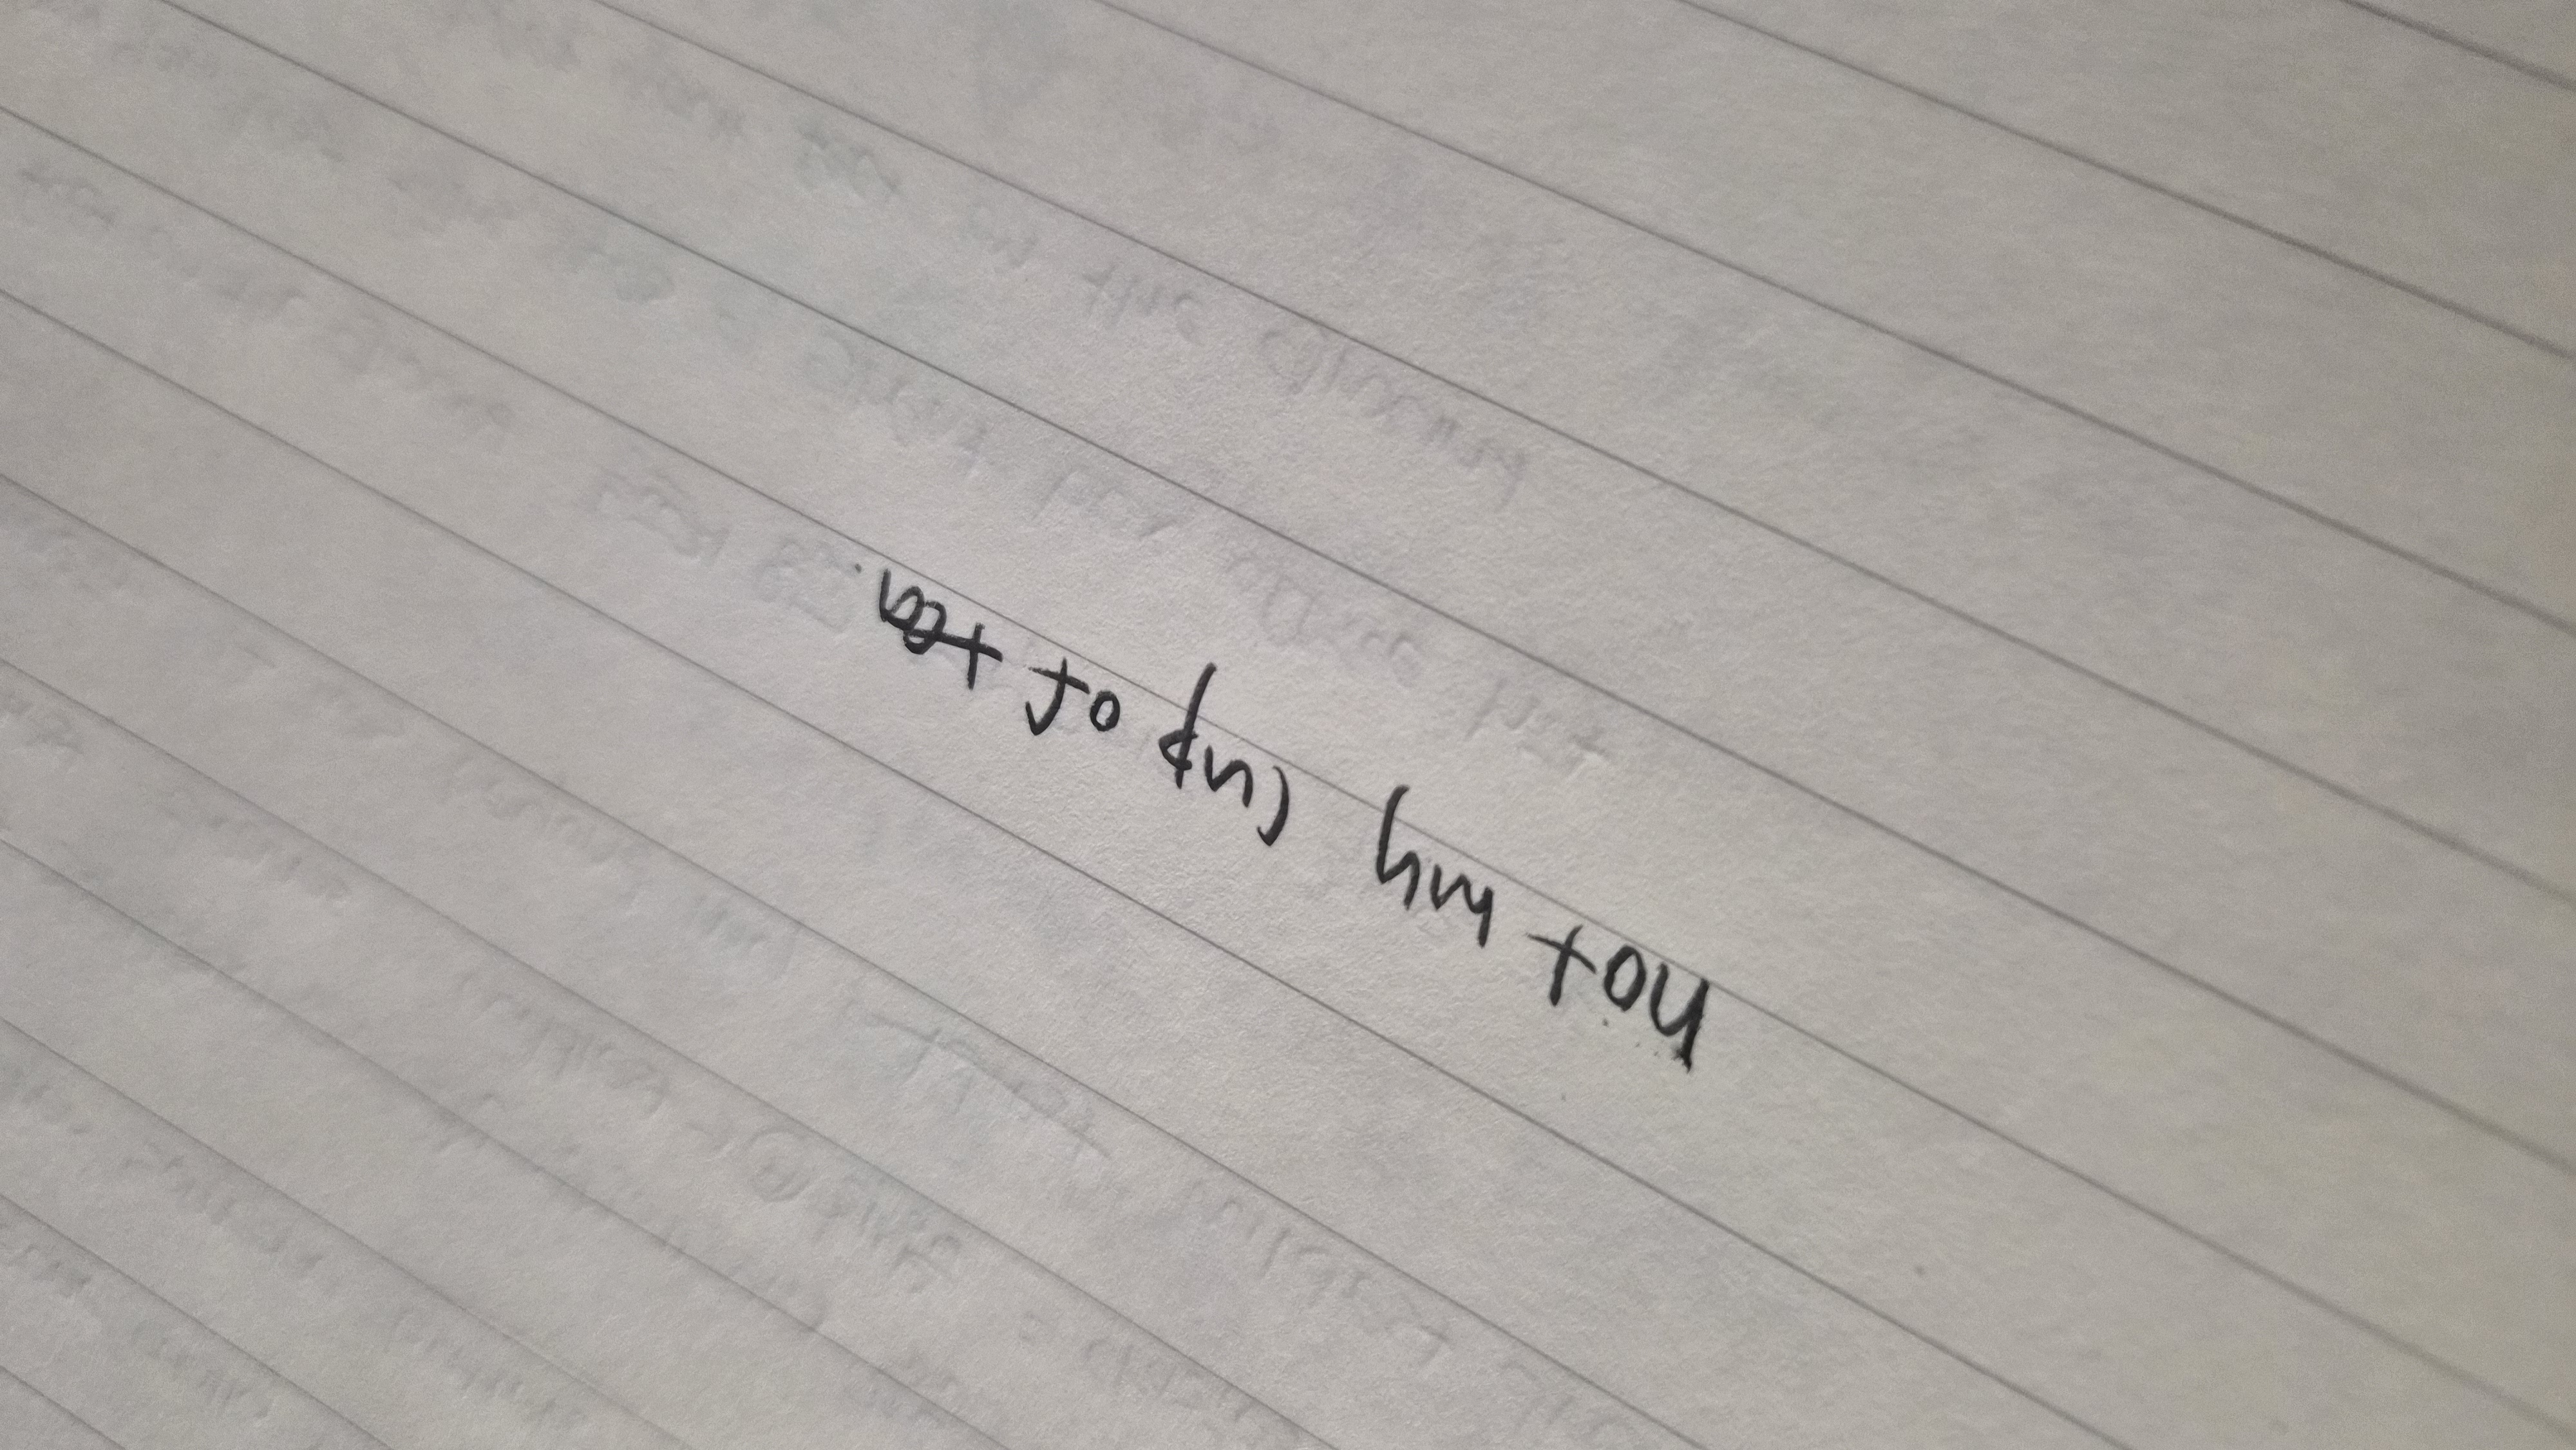 not my cup of tea.